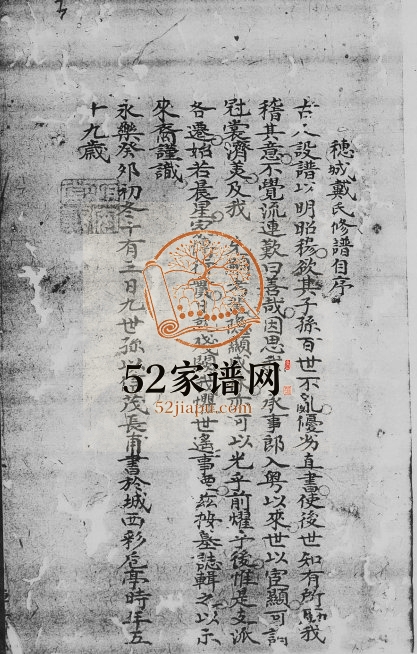 穗城戴氏修譜自序
古人設譜以明昭穆欲其子孫百世不亂優劣直書使後世知有所我
稽其意不覺流連歎曰善哉因思承事郎入粵以來世以宦顯可謂
冠裳濟美及我顯隱顯可以光乎前耀乎後惟是支派
各遷始若晨星家世遙事按墓誌輯之以示
來裔謹識
永樂癸卯初冬十有二日九世孫以茂長甫書於城西彩亭時年五
十九歲
52家谱网
52jiapu.com